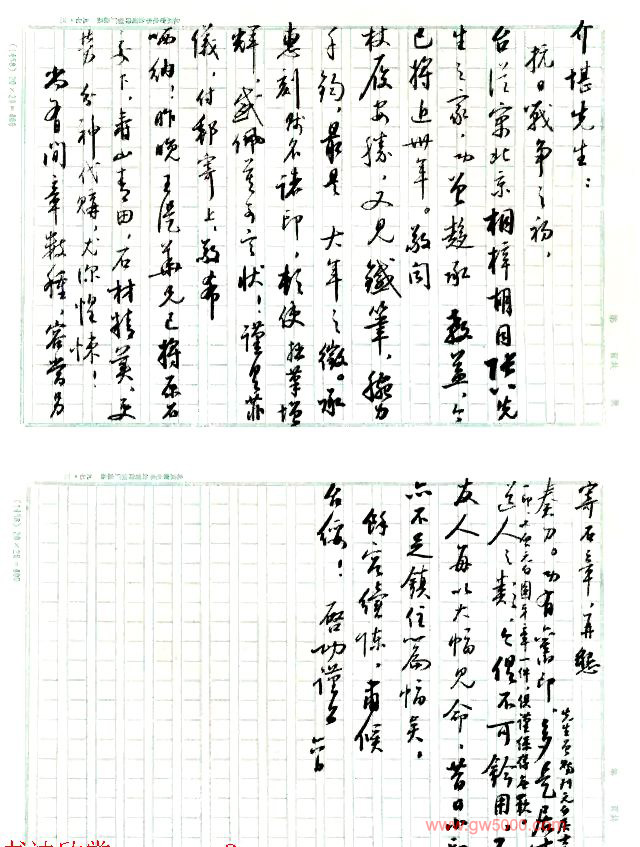 介堪先生：
抗日战争之初，
台从寓北京梓胡同张心先
生之家，功曾趋承教益，今
已将近卅年。敬闻
杖履安胜，又见铁笔，腕力
千钧，最是大年之徵。承
惠刻贱名诸印，顿使拙笔增
辉，感佩莫可言状！谨呈菲
仪，付邮寄上，敬希
哂纳！昨晚王兄已将原石
交下，寿山青田，石材精美，更
劳分神代购，尤深惶悚！
尚有闲章数种，容当另
寄石章，再恳
奏刀。功有旧印，多是居士
道人之类，今俱不可钤用，
友人每以大幅见命，昔日小印
亦不足镇住篇幅矣。
馀容续陈，肃候
台绥！ 启功谨上 六日
www.gw5000.com